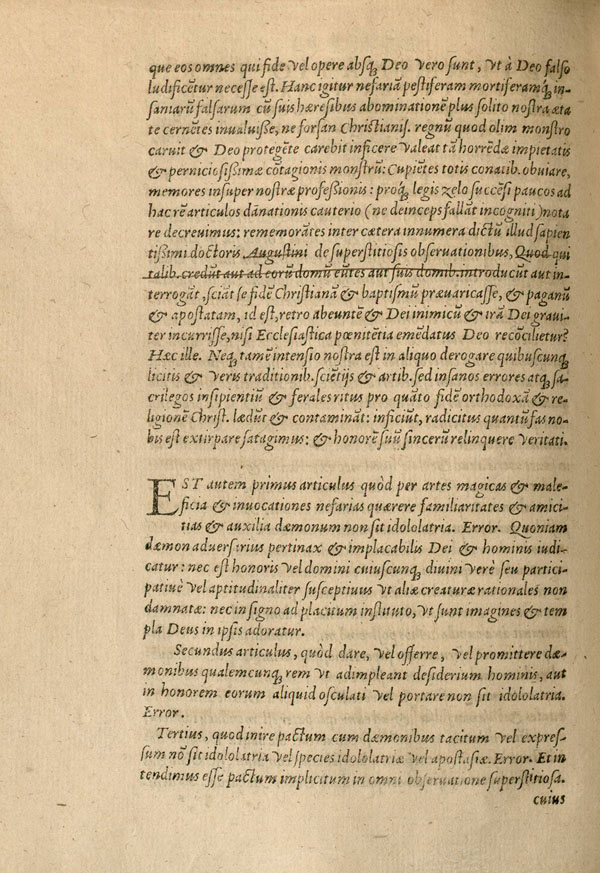 que eos omnes qui fide vel opere absq; Deo vero sunt, vt à Deo falso
ludificētur necesse est. Hanc igitur nefariā pestiferam mortiferamq; in-
saniarū falsarum cū suis hæresibus abominationē plus solito nostra æta
te cernētes inualuisse, ne forsan Christianis. regnū quod olim monstro
caruit & Deo protegēte carebit inficere valeat tā horrēdæ impietatis
& perniciosissimæ cōtagionis monstrū: Cupiētes totis conatib. obuiare,
memores insuper nostræ professionis: proq; legis zelo succēsi paucos ad
hac rē articulos dānationis cauterio (ne deinceps fallāt incogniti) nota
re decreuimus: rememorātes inter cætera innumera dictū illud sapien
tissimi doctoris Augustini de superstitiosis obseruationibus, Quod qui
talib. credūt aut ad eorū domū eūtes aut suis domib. introducūt aut in-
terrogāt, sciāt se fidē Christianā & baptismū præuaricasse, & paganū
& apostatam, id est, retro abeuntē & Dei inimicū & irā Dei graui-
ter incurrisse, nisi Ecclesiastica pœnitētia emēdatus Deo recōcilietur?
Hæc ille. Neq; tamē intensio nostra est in aliquo derogare quibuscunq;
licitis & veris traditionib. sciētijs & artib. sed insanos errores atq; sa-
crilegos insipientiū & ferales ritus pro quāto fidē orthodoxā & re-
ligionē Christ. lædūt & contamināt: inficiūt, radicitus quantū fas no-
bis est extirpare satagimus: & honorē suū sincerū relinquere veritati.
EST autem primus articulus quòd per artes magicas & male-
ficia & inuocationes nefarias quærere familiaritates & amici-
tias & auxilia dæmonum non sit idololatria. Error. Quoniam
dæmon aduersirius pertinax & implacabilis Dei & hominis iudi-
catur: nec est honoris vel domini cuiuscunq; diuini verè seu partici-
patiuè vel aptitudinaliter susceptiuus vt aliæ creaturæ rationales non
damnatæ: nec in signo ad placitum instituto, vt sunt imagines & tem
pla Deus in ipsis adoratur.
Secundus articulus, quòd dare, vel offerre, vel promittere dæ-
monibus qualemcunq; rem vt adimpleant desiderium hominis, aut
in honorem eorum aliquid osculati vel portare non sit idololatria.
Error.
Tertius, quod inire pactum cum dæmonibus tacitum vel expres-
sum nō sit idololatria vel species idololatriæ vel apostasiæ. Error. Et in
tendimus esse pactum implicitum in omni obseruatione superstitiosa.
cuius